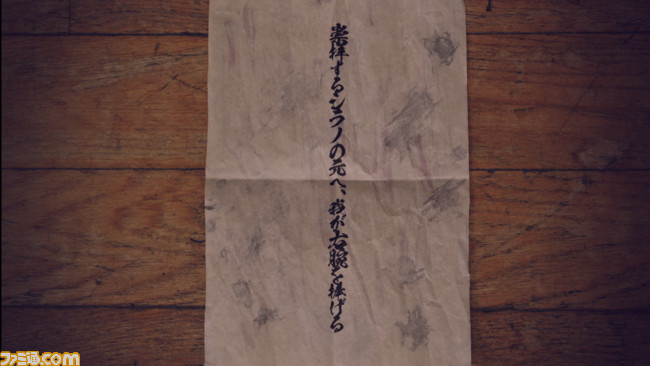 崇拝するシラノの元へ、我が右腕を捧げる
ファミ通.com